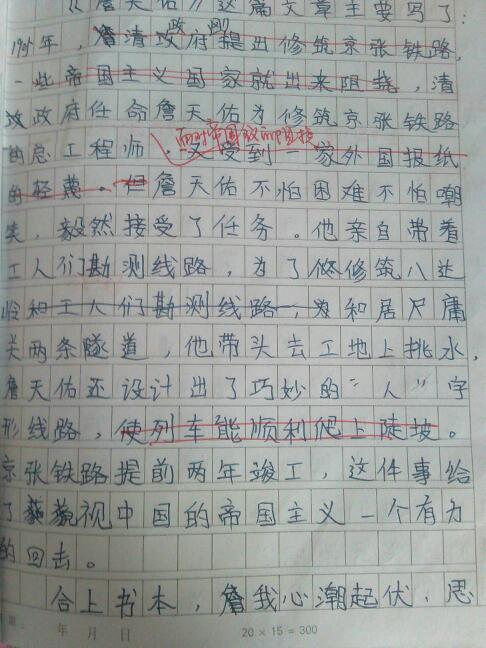 《詹天佑》这篇文章主要写了：
政府
1905年，詹清政府提出修筑京张铁路，
一些帝国主义国家就出来阻挠，清
政政府任命詹天佑为修筑京张铁路
面对帝国主义的阻挠
的总工程师，又受到一家外国报纸
的轻蔑。但詹天佑不怕困难不怕嘲
笑，毅然接受了任务。他亲自带着
工人们勘测线路，为了修筑八达
岭和工人们勘测线路，为和居尺庸
关两条隧道，他带头去工地上挑水，
詹天佑还设计出了巧妙的“人”字
形线路，使列车能顺利爬上陡坡。
京张铁路提前两年竣工，这件事给
了藐视中国的帝国主义一个有力
的回击。
合上书本，詹我心潮起伏，思
年 月 日
20 × 15 = 300